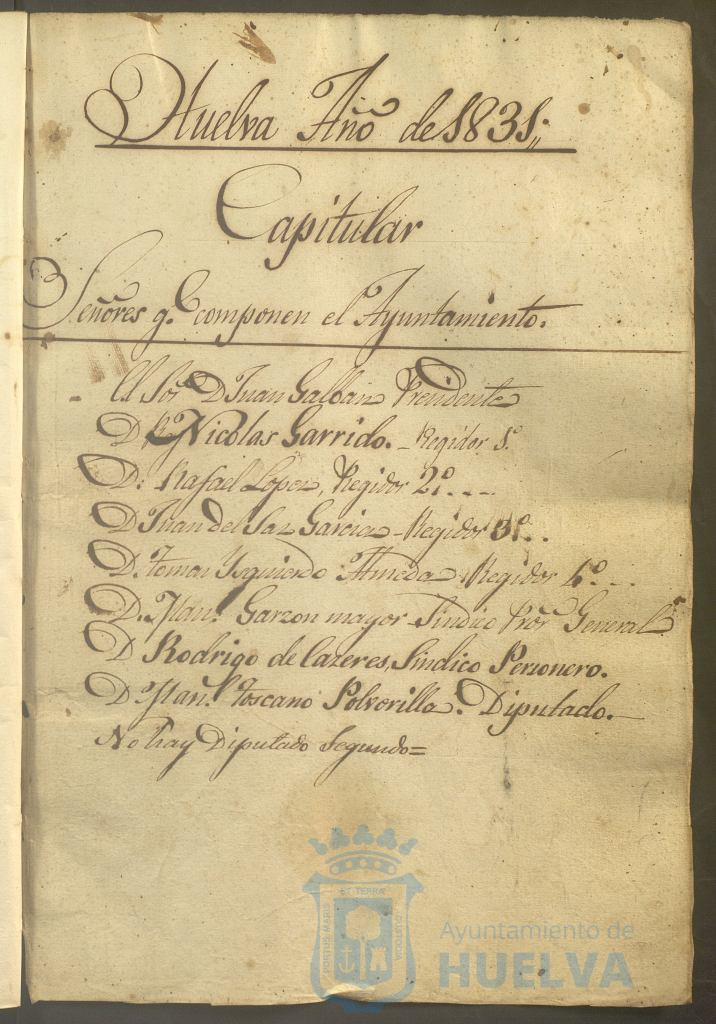 Huelva Año de 1831,,
Capitular
Señores q.e componen el Ayuntamiento.
El Sor. D Juan Galban Precidente
D Nicolas Garrido. - Regidor 1º
D. Rafael Lopez, Regidor 2º. - - -
D Juan del Saz Garcia - Regidor 3º. . .
D. Tomas Ysquierdo Almeda Regidor 4º. - - .
D. Man.l Garzon mayor Sindico Pror General
D Rodrigo de Cazeres, Sindico Personero.
D Man.l Toscano Polvorilla. Diputado. -
No hay Diputado Segundo =
PORTUS MARIS
ET TERRÆ
CUSTODIA
Ayuntamiento de
HUELVA